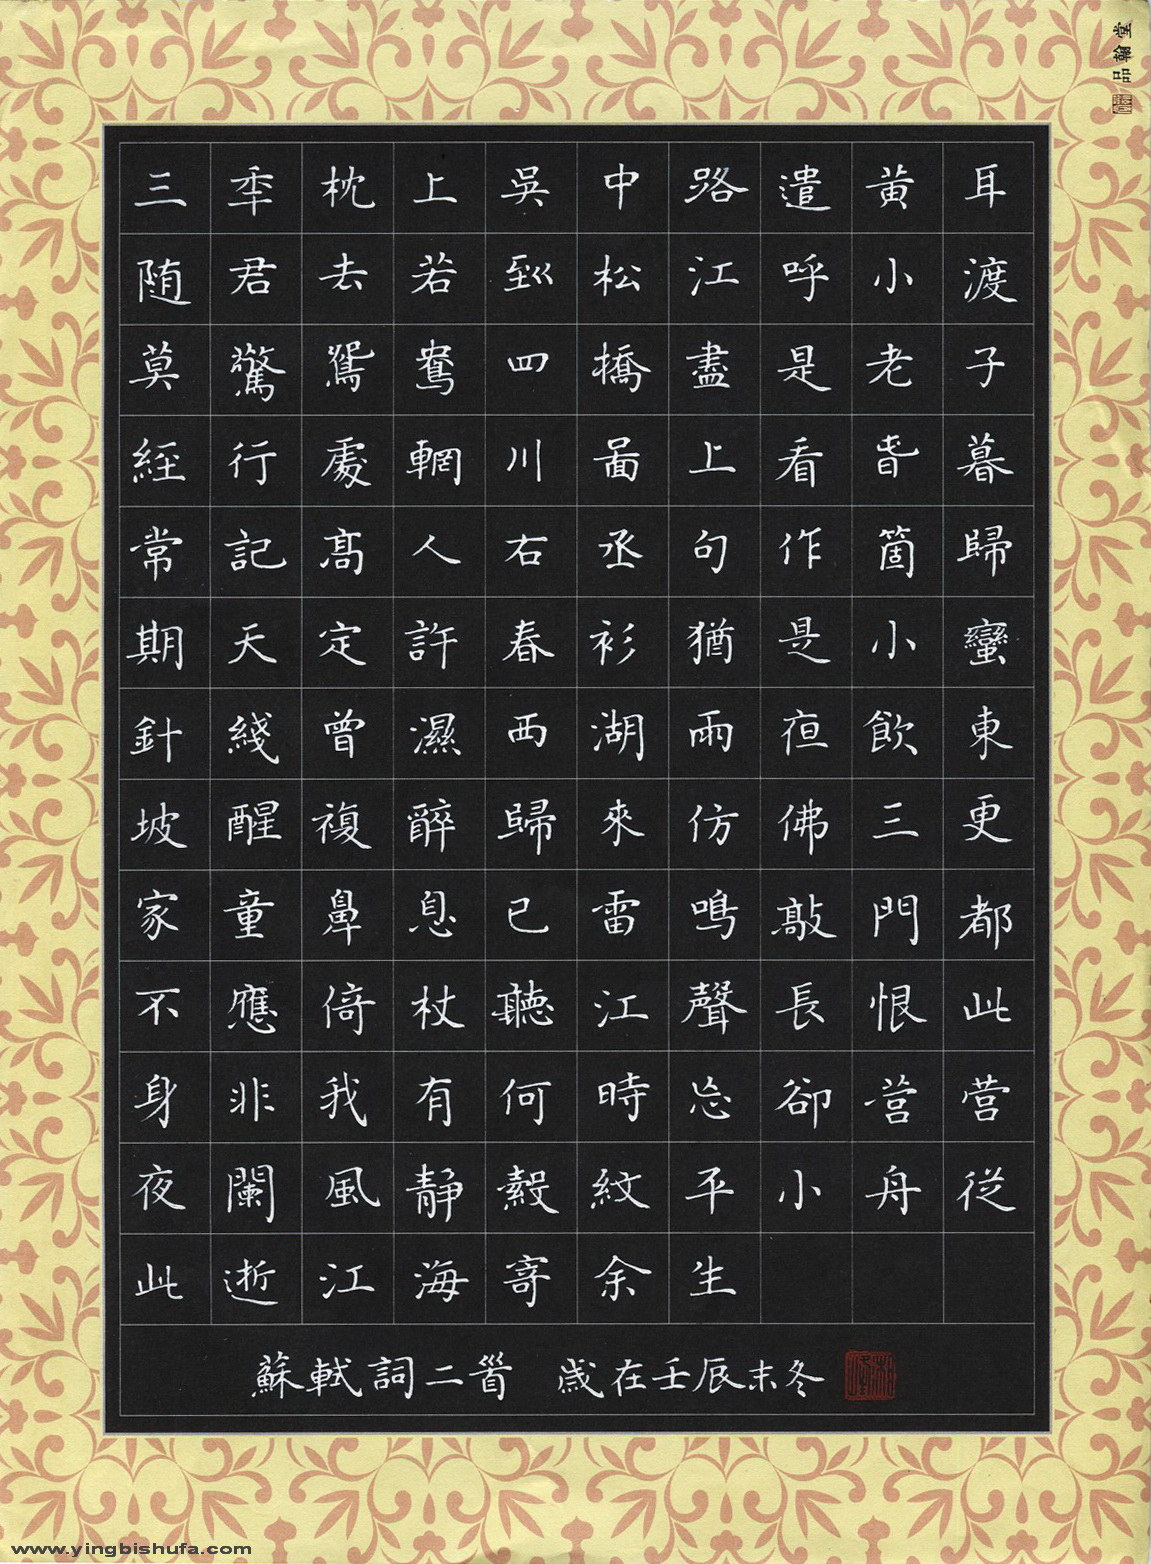 三秊枕上吳中路遣黃耳
随君去若到松江呼小渡
莫驚鴛鴦四橋盡是老子
經行處輞川圖上看春暮
常記高人右丞句作箇歸
期天定許春衫猶是小蠻
針綫曾濕西湖雨夜飲東
坡醒復醉歸來仿佛三更
家童鼻息已雷鳴敲門都
不應倚杖聽江聲長恨此
身非我有何時忘卻營營
夜闌風靜縠紋平小舟從
此逝江海寄余生
蘇軾詞二首 歲在壬辰末冬
品翰堂
www.yingbishufa.com